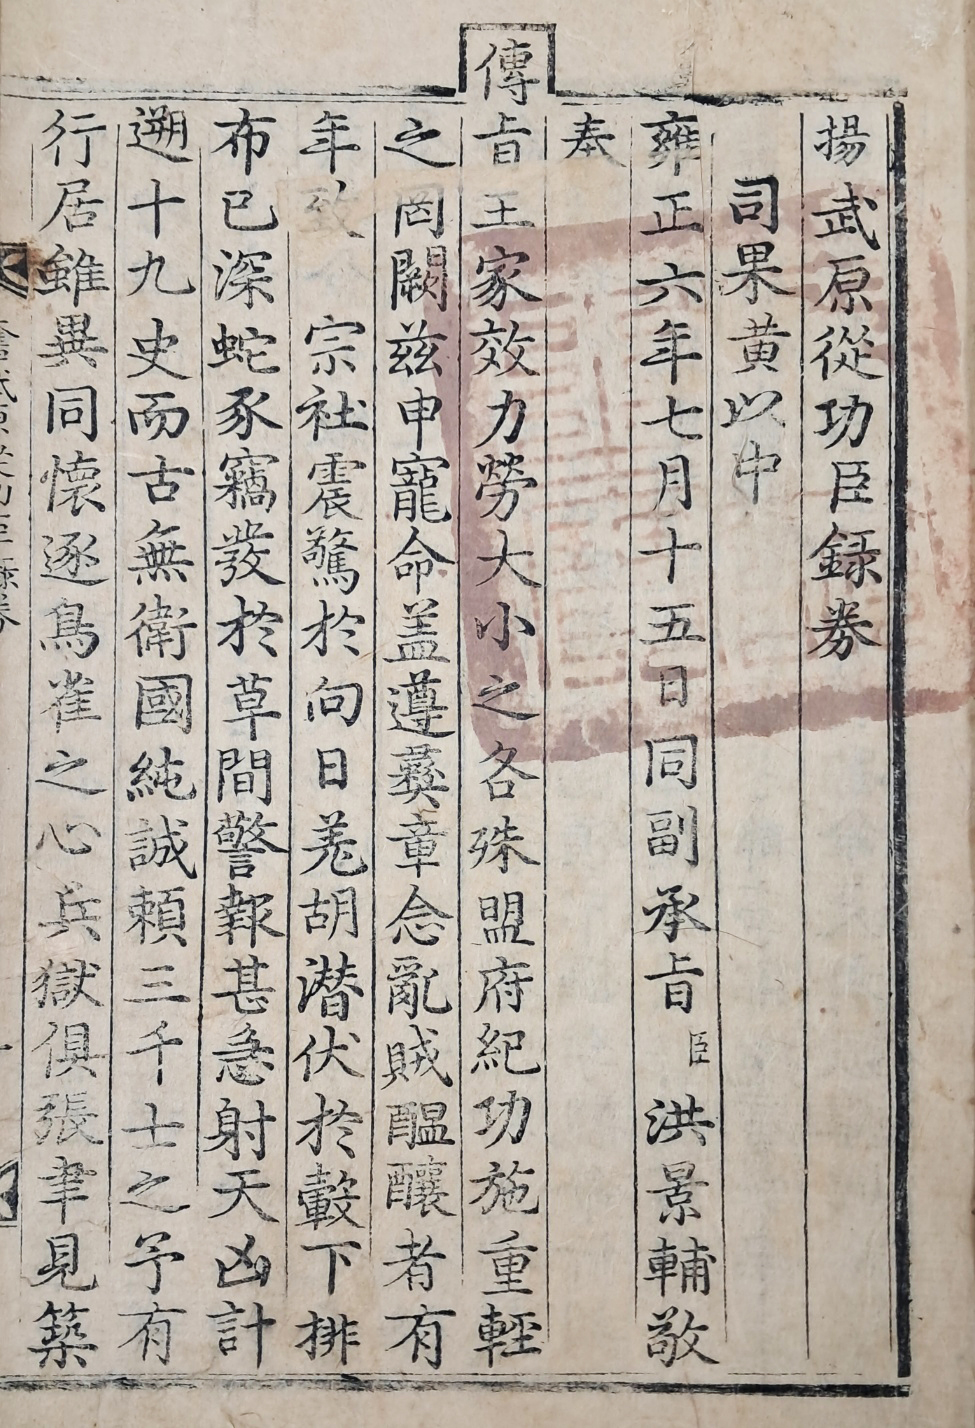 揚武原從功臣錄券
司果黃以中
雍正六年七月十五日同副承旨臣洪景輔敬
奉
傳旨王家效力勞大小之各殊盟府紀功施重輕
之罔闕茲申寵命盖遵彛章念亂賊醞釀者有
年致宗社震驚於向日羌胡潜伏於轂下排
布已深蛇豕竊發於草間警報甚急射天凶計
遡十九史而古無衛國純誠賴三千士之予有
行居雖異同懷逐鳥雀之心兵獄俱張聿見築